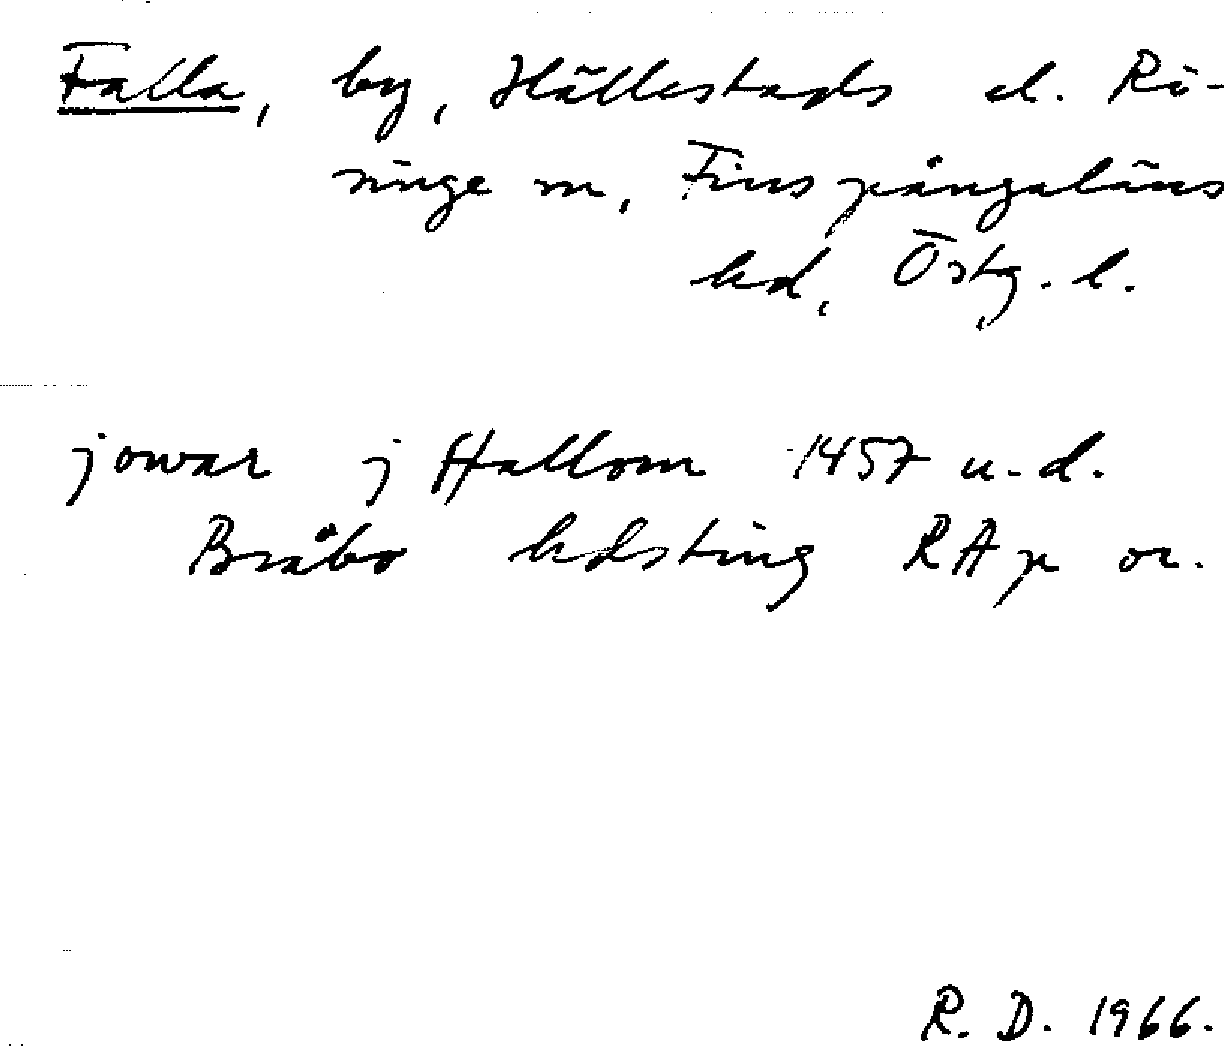 Falla, by, Hällestads el. Rö-
ninge sn, Finspångaläns
hd, Östg. l.
jowar j ffallom 1457 u.d.
Bråbo hdsting RAp or.
R. D. 1966.